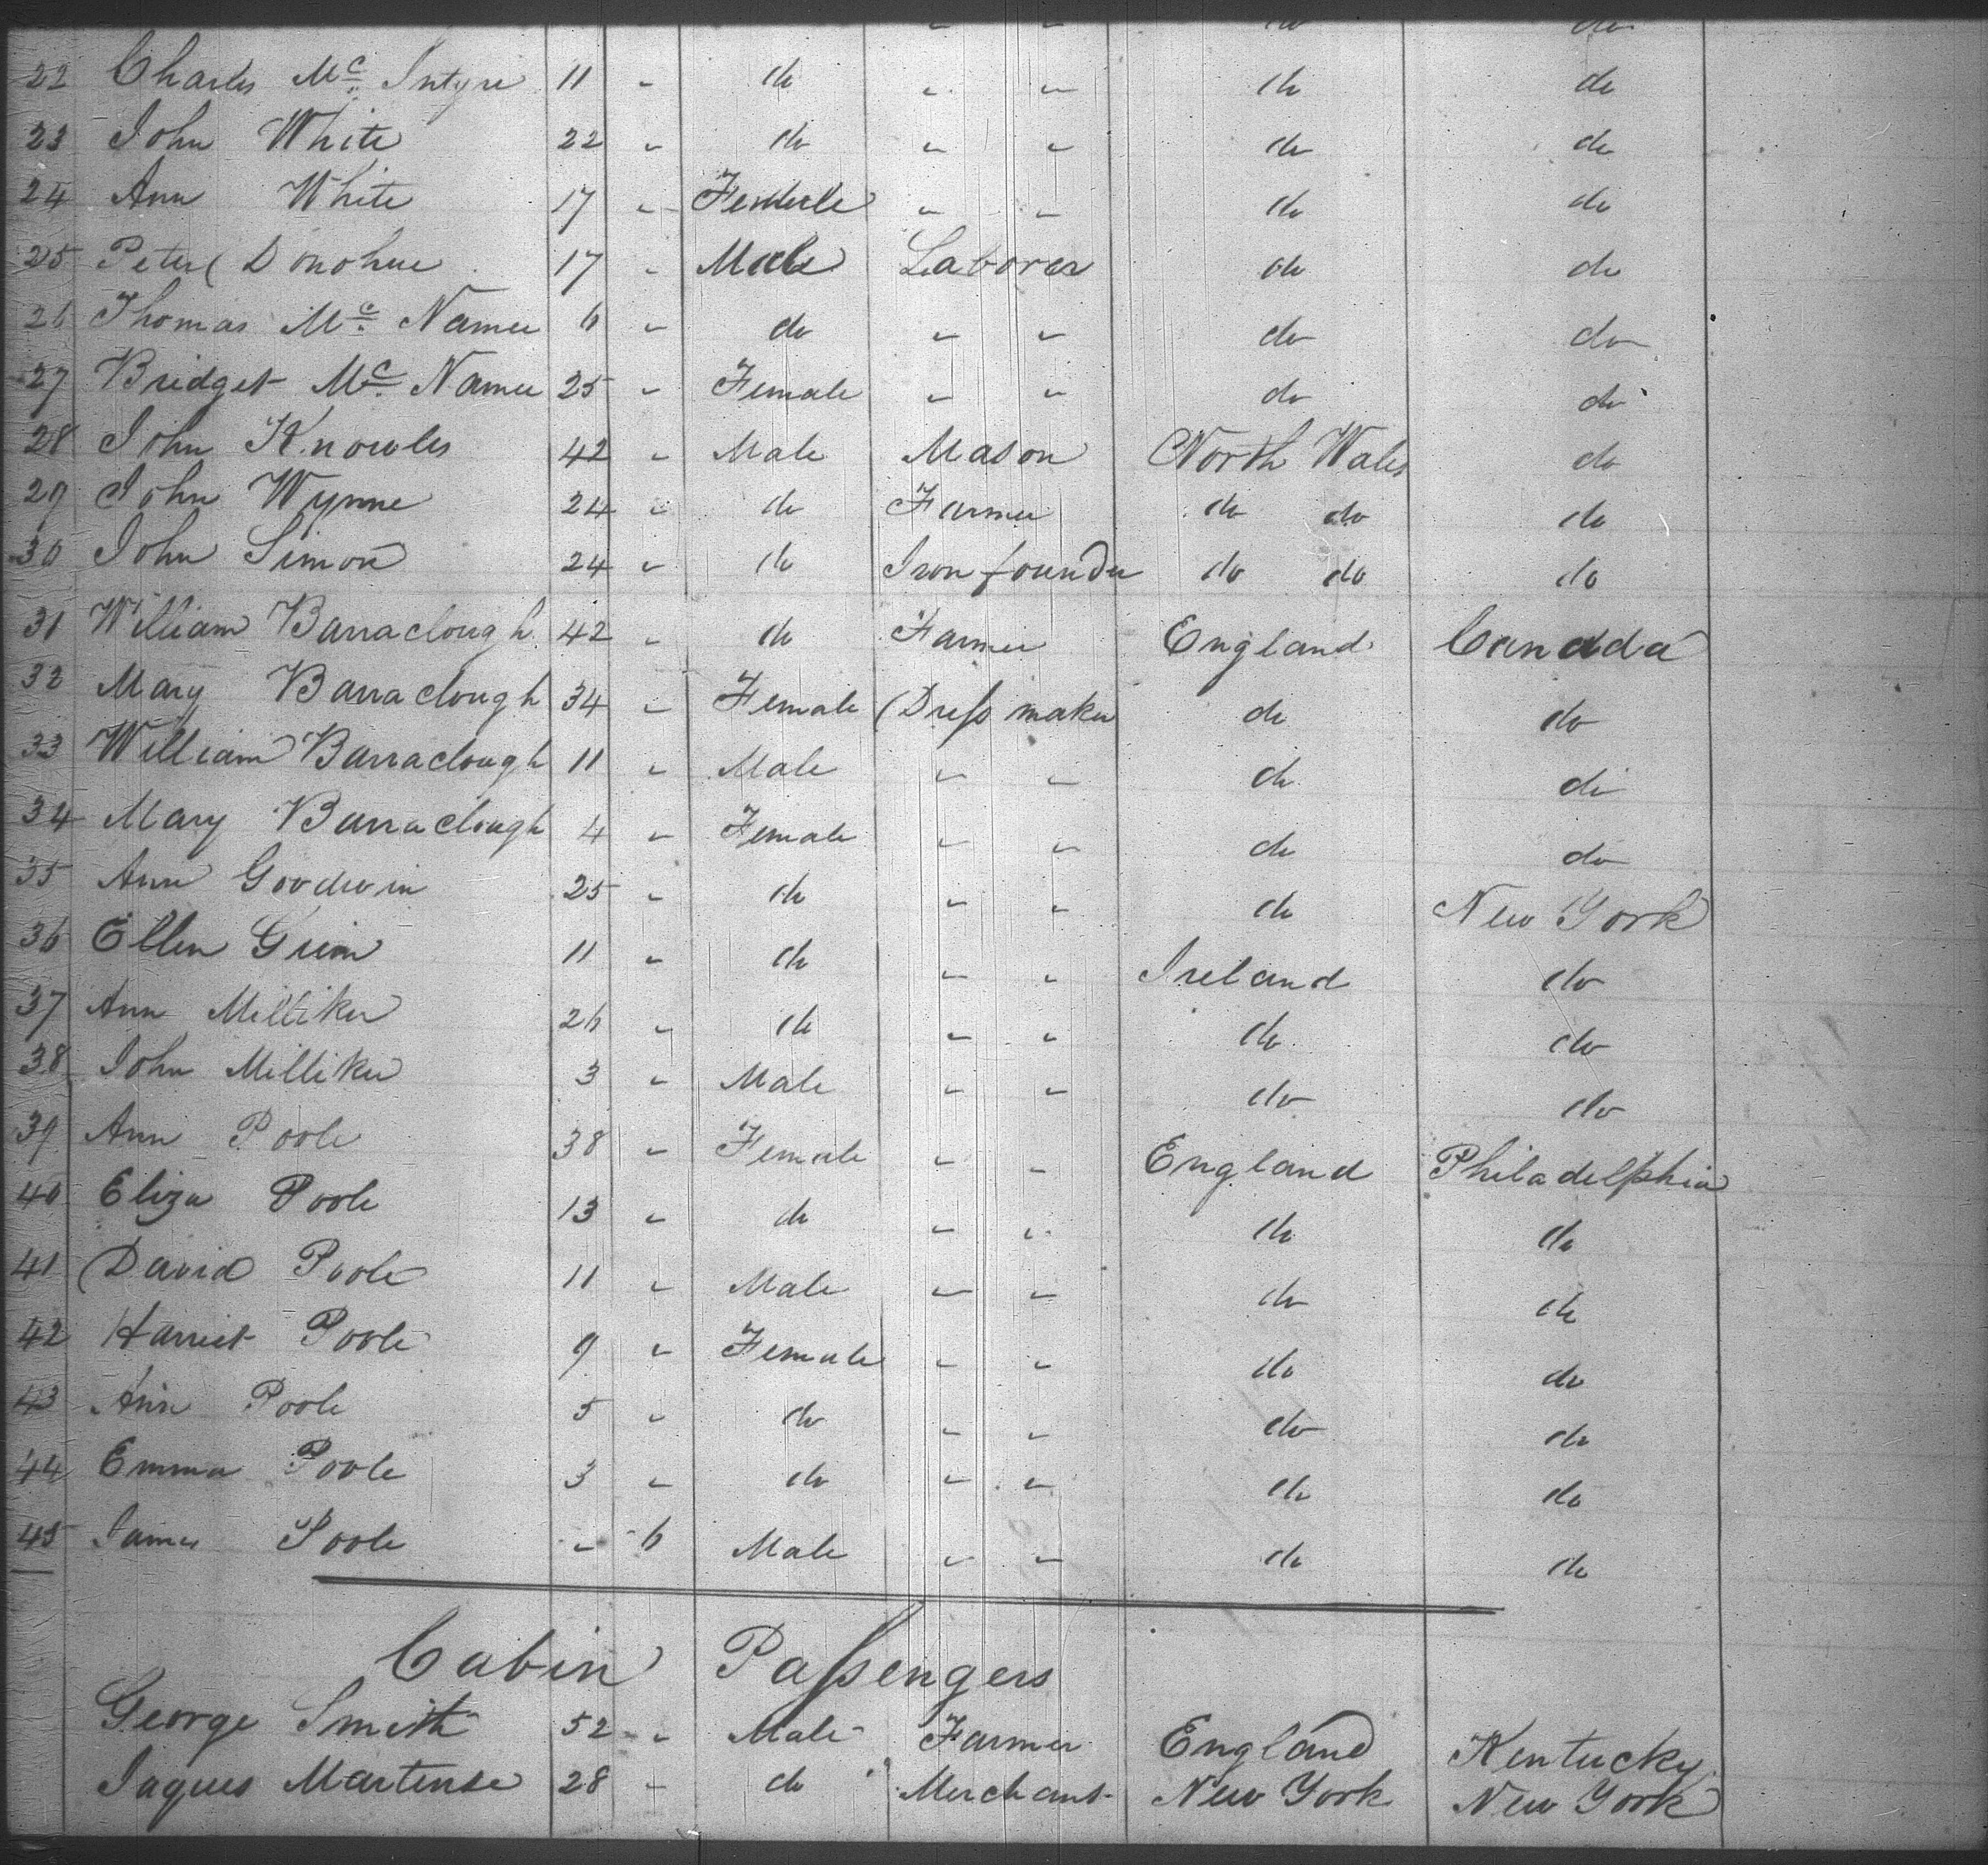 " " do do
22 Charles Mc Intyre 11 " do " " do do
23 John White 22 " do " " do do
24 Ann White 17 " Female " " do do
25 Peter Donohue 17 " Male Laborer do do
26 Thomas Mc Namee 6 " do " " do do
27 Bridget Mc Namee 25 " Female " " do do
28 John Knowles 42 " Male Mason North Wales do
29 John Wynne 24 " do Farmer do do do
30 John Simon 24 " do Iron founder do do do
31 William Barraclough 42 " do Farmer England Canada
32 Mary Barraclough 34 " Female Dress maker do do
33 William Barraclough 11 " Male " " do do
34 Mary Barraclough 4 " Female " " do do
35 Ann Goodwin 25 " do " " do New York
36 Ellen 11 " do " " Ireland do
37 Ann Milliken 26 " do " " do do
38 John Milliken 3 " Male " " do do
39 Ann Poole 38 " Female " " England Philadelphia
40 Eliza Poole 13 " do " " do do
41 David Poole 11 " Male " " do do
42 Harriet Poole 9 " Female " " do do
43 Ann Poole 5 " do " " do do
44 Emma Poole 3 " do " " do do
45 James Poole " 6 Male " " do do
Cabin Passengers
George Smith 52 " Male Farmer England Kentucky
Jaques Martense 28 " do Merchant New York New York